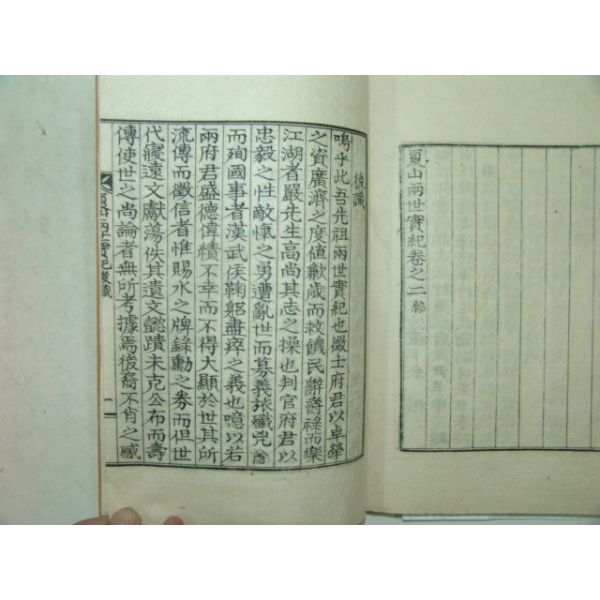 夏山兩世實紀卷之二終
後識
嗚乎此吾先祖兩世實紀也徵士府君以卓犖
之資廣濟之度値歉歲而救饑民辭爵祿而樂
江湖者嚴先生高尚其志之操也判官府君以
忠毅之性敵愾之勇遭亂世而募義旅殲兇酋
而殉國事者漢武侯鞠躬盡瘁之義也噫以若
兩府君盛德偉績不幸而不得大顯於世其所
流傳而徵信者惟賜水之牌錄勳之券而但世
代寢遠文獻蕩佚其遺文懿蹟未克公布而壽
傳使世之尚論者無所考據焉後裔不肖之感
夏山兩世實紀後識
一